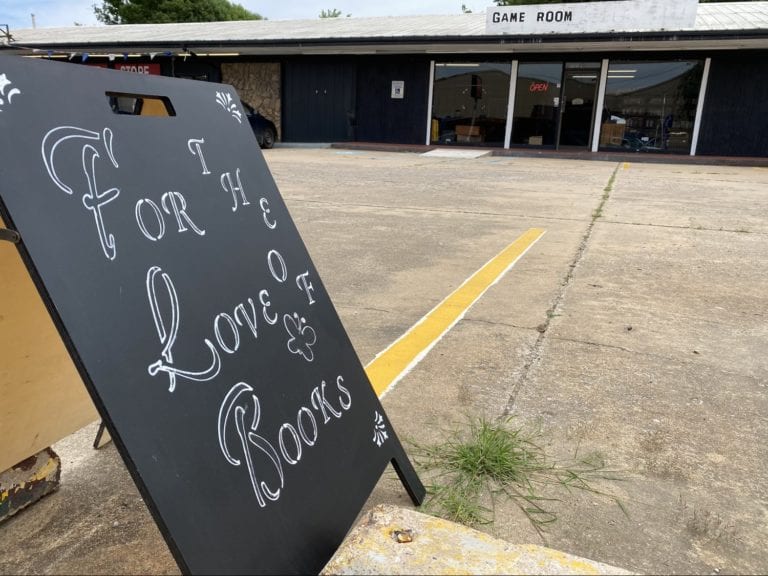 GAME ROOM
STORE
OPEN
FOR THE
LOVE OF
BOOKS